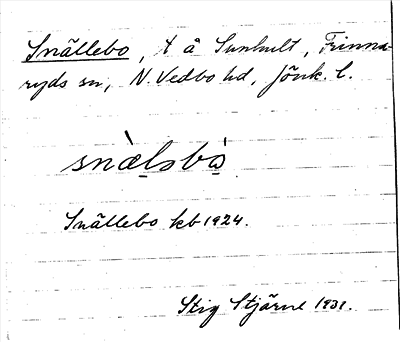 Snällebo, t å Sunhult, Frinna-
ryds sn, N. Vedbo hd, Jönk. l.
snæ̀lsbò
Snällebo kb 1924.
Stig Stjärne 1931.